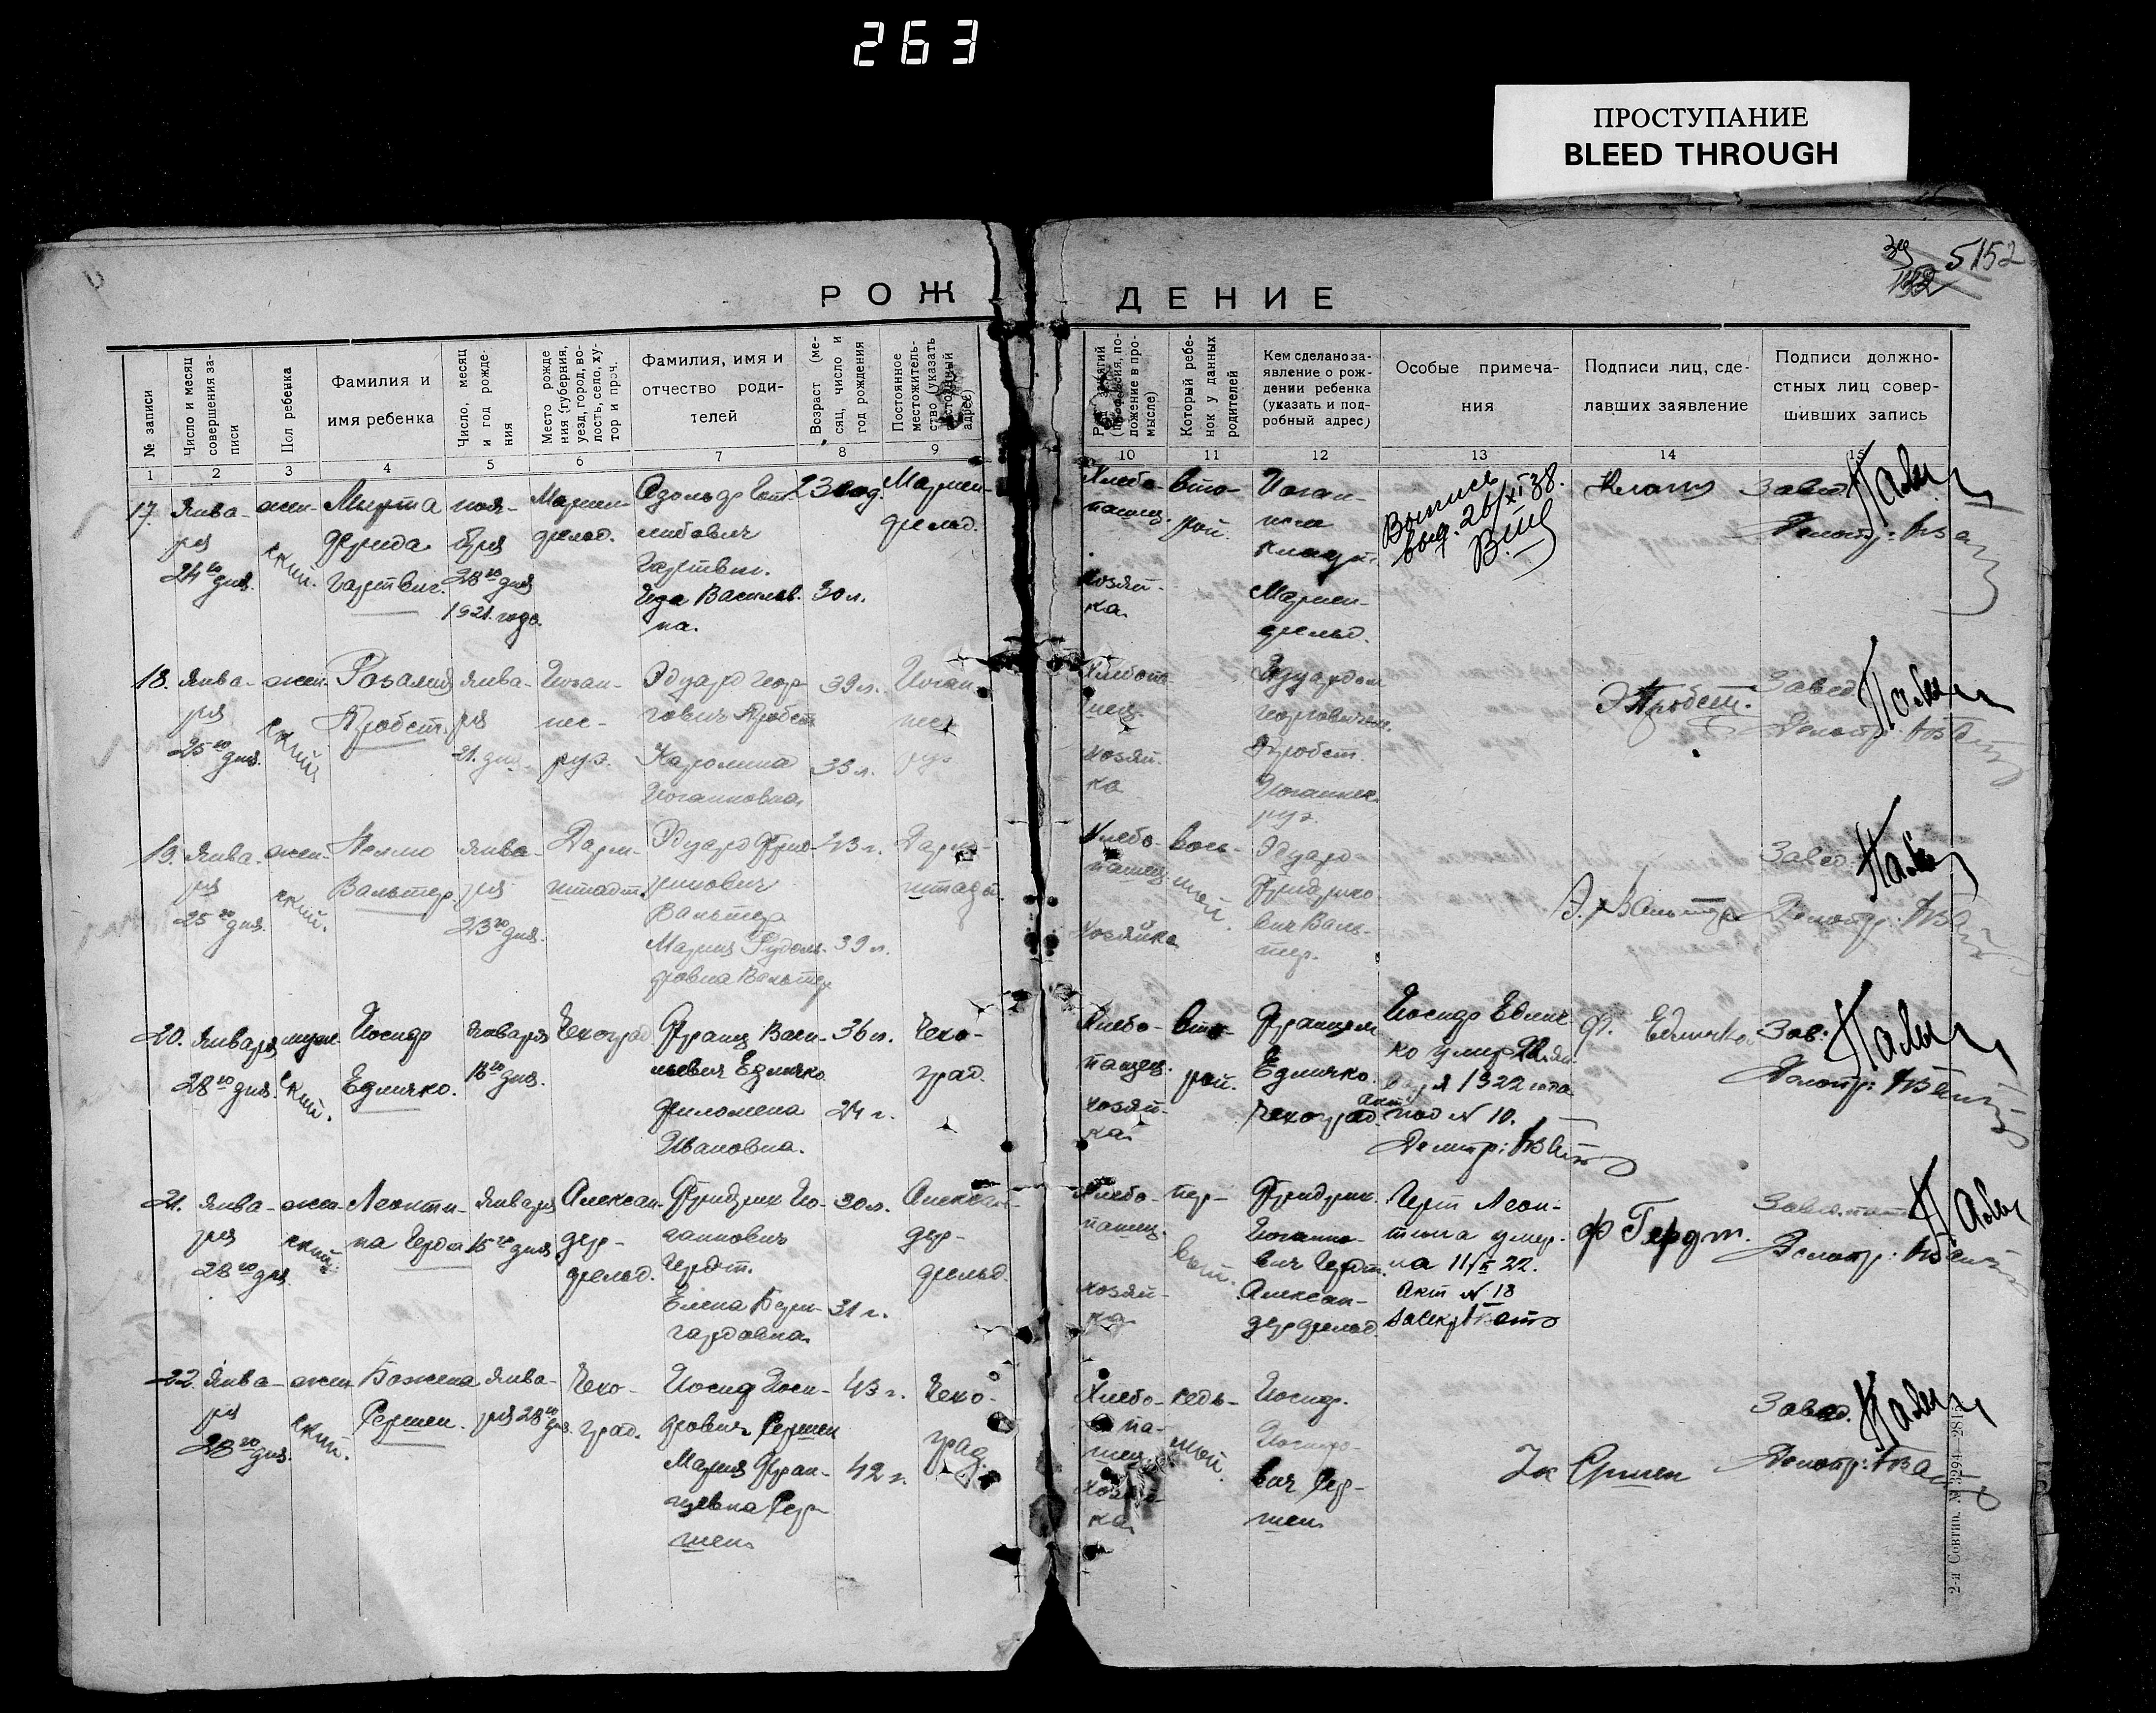 263
ПРОСТУПАНИЕ
BLEED THROUGH
5152
РОЖДЕНИЕ
№ записи
Число и месяц совершения записи
Пол ребенка
Фамилия и
имя ребенка
Число, месяц и год рождения
Место рождения (губерния, уезд, город, волость, село, хутор и проч.
Фамилия, имя и
отчество роди-
телей
Возраст (месяц, число и год рождения
Постоянное местожительство (указать адрес)
Который ребенок у данных родителей
Кем сделано за-
явление о рож-
дении ребенка
(указать и под-
робный адрес)
Особые примеча-
ния
Подписи лиц, сде-
лавших заявление
Подписи должно-
стных лиц совер-
шивших запись
1 2 3 4 5 6 7 8 9 10 11 12 13 14 15
17. Янва-
ря
24го дня.
жен-
ский.
Фрида
Гартвиг.
ноя-
бря
28го дня
1921 года.
Мариен-
фельд.
Гартвиг.
Ида Васильев-
на.
30 л.
Мариен-
фельд.
Хлебо-
пашец.
Хозяй-
ка
вто-
рой.
Иоган-
Мариен-
фельд.
Выпись
выд. 26/XI 38.
Завед.
18. Янва-
ря
25го дня.
жен-
ский
Розалия
Пробст.
Янва-
ря
21. дня
Иоган-
нес-
руэ.
Эдуард Геор-
гович Пробст
Каролина
Иогановна
39 л.
35 л.
Иоган-
нес-
руэ
Хлебопа-
шец.
Хозяй-
ка
Эдуардом
Георговичем
Пробст.
Иоганнес-
руэ.
Э Пробст.
Завед.
19. Янва-
ря
25го дня.
жен-
ский.
Вальтер.
Янва-
ря
23го дня.
Дарм-
штадт.
Эдуард Фрид-
рихович
Вальтер
Мария Рудоль-
фовна Вальтер
43 г.
39 л.
Дарм-
штадт.
Хлебо-
пашец
Хозяйка
вось-
мой.
Эдуард
Фридрихо-
вич Валь-
тер.
Э. Вальтер
Завед.
20. Января
28го дня.
муж-
ский.
Иосиф
Едличко.
Января
18го дня.
Чехоград
Франц Васи-
льевич Едличко
Филомена
Ивановна.
36 л.
24 г.
Чехо-
град.
Хлебо-
пашец.
Хозяй-
ка
вто-
рой.
Францем
Едличко.
Чехоград.
Иосиф Едлич-
ко умер 22 ян-
варя 1922 года
акт под № 10.
Ф. Едличко.
Зав:
21. Янва-
ря
28го дня
жен-
ский.
Леонти-
на Гердт
Января
15го дня
Алексан-
дер-
фельд.
Фридрих Ио-
ганнович
Гердт.
Елена Берн-
гардовна
30 л.
31 г.
Алексан-
дер-
фельд.
Хлебо-
пашец.
Хозяй-
ка
пер-
вый.
Фридрих
Иоганно-
вич Гердт.
Алексан-
дерфельд.
Герт Леон-
тина умер-
ла 11/II 22.
Акт № 18
Ф Гердт.
22. Янва-
ря
28го дня.
жен-
ский.
Божена
Сершен.
Янва-
ря 28го дня.
Чехо-
град.
Иосиф Иоси-
фович Сершен
Мария Фран-
цевна Сер-
шен.
43 г.
42 г.
Чехо-
град.
Хлебо-
па-
шец
Хозяй-
ка
седь-
мой.
Иосиф.
Иосифо-
вич Сер-
шен.
Завед.